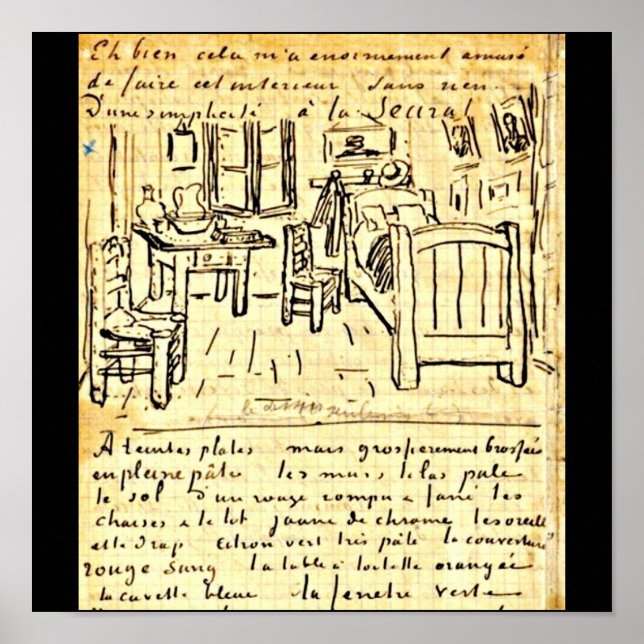 Eh bien cela m'a enormement amusé
de faire cet interieur sans rien.
D'une simplicité à la Seurat
A teintes plates mais grossierement brossées
en pleine pâte les murs lilas pale
le sol d'un rouge rompu & fané les
chaises & le lit jaune de chrome les oreillers
et le drap citron vert très pâle la couverture
rouge sang la table à toilette orangée
la cuvette bleue la fenetre verte